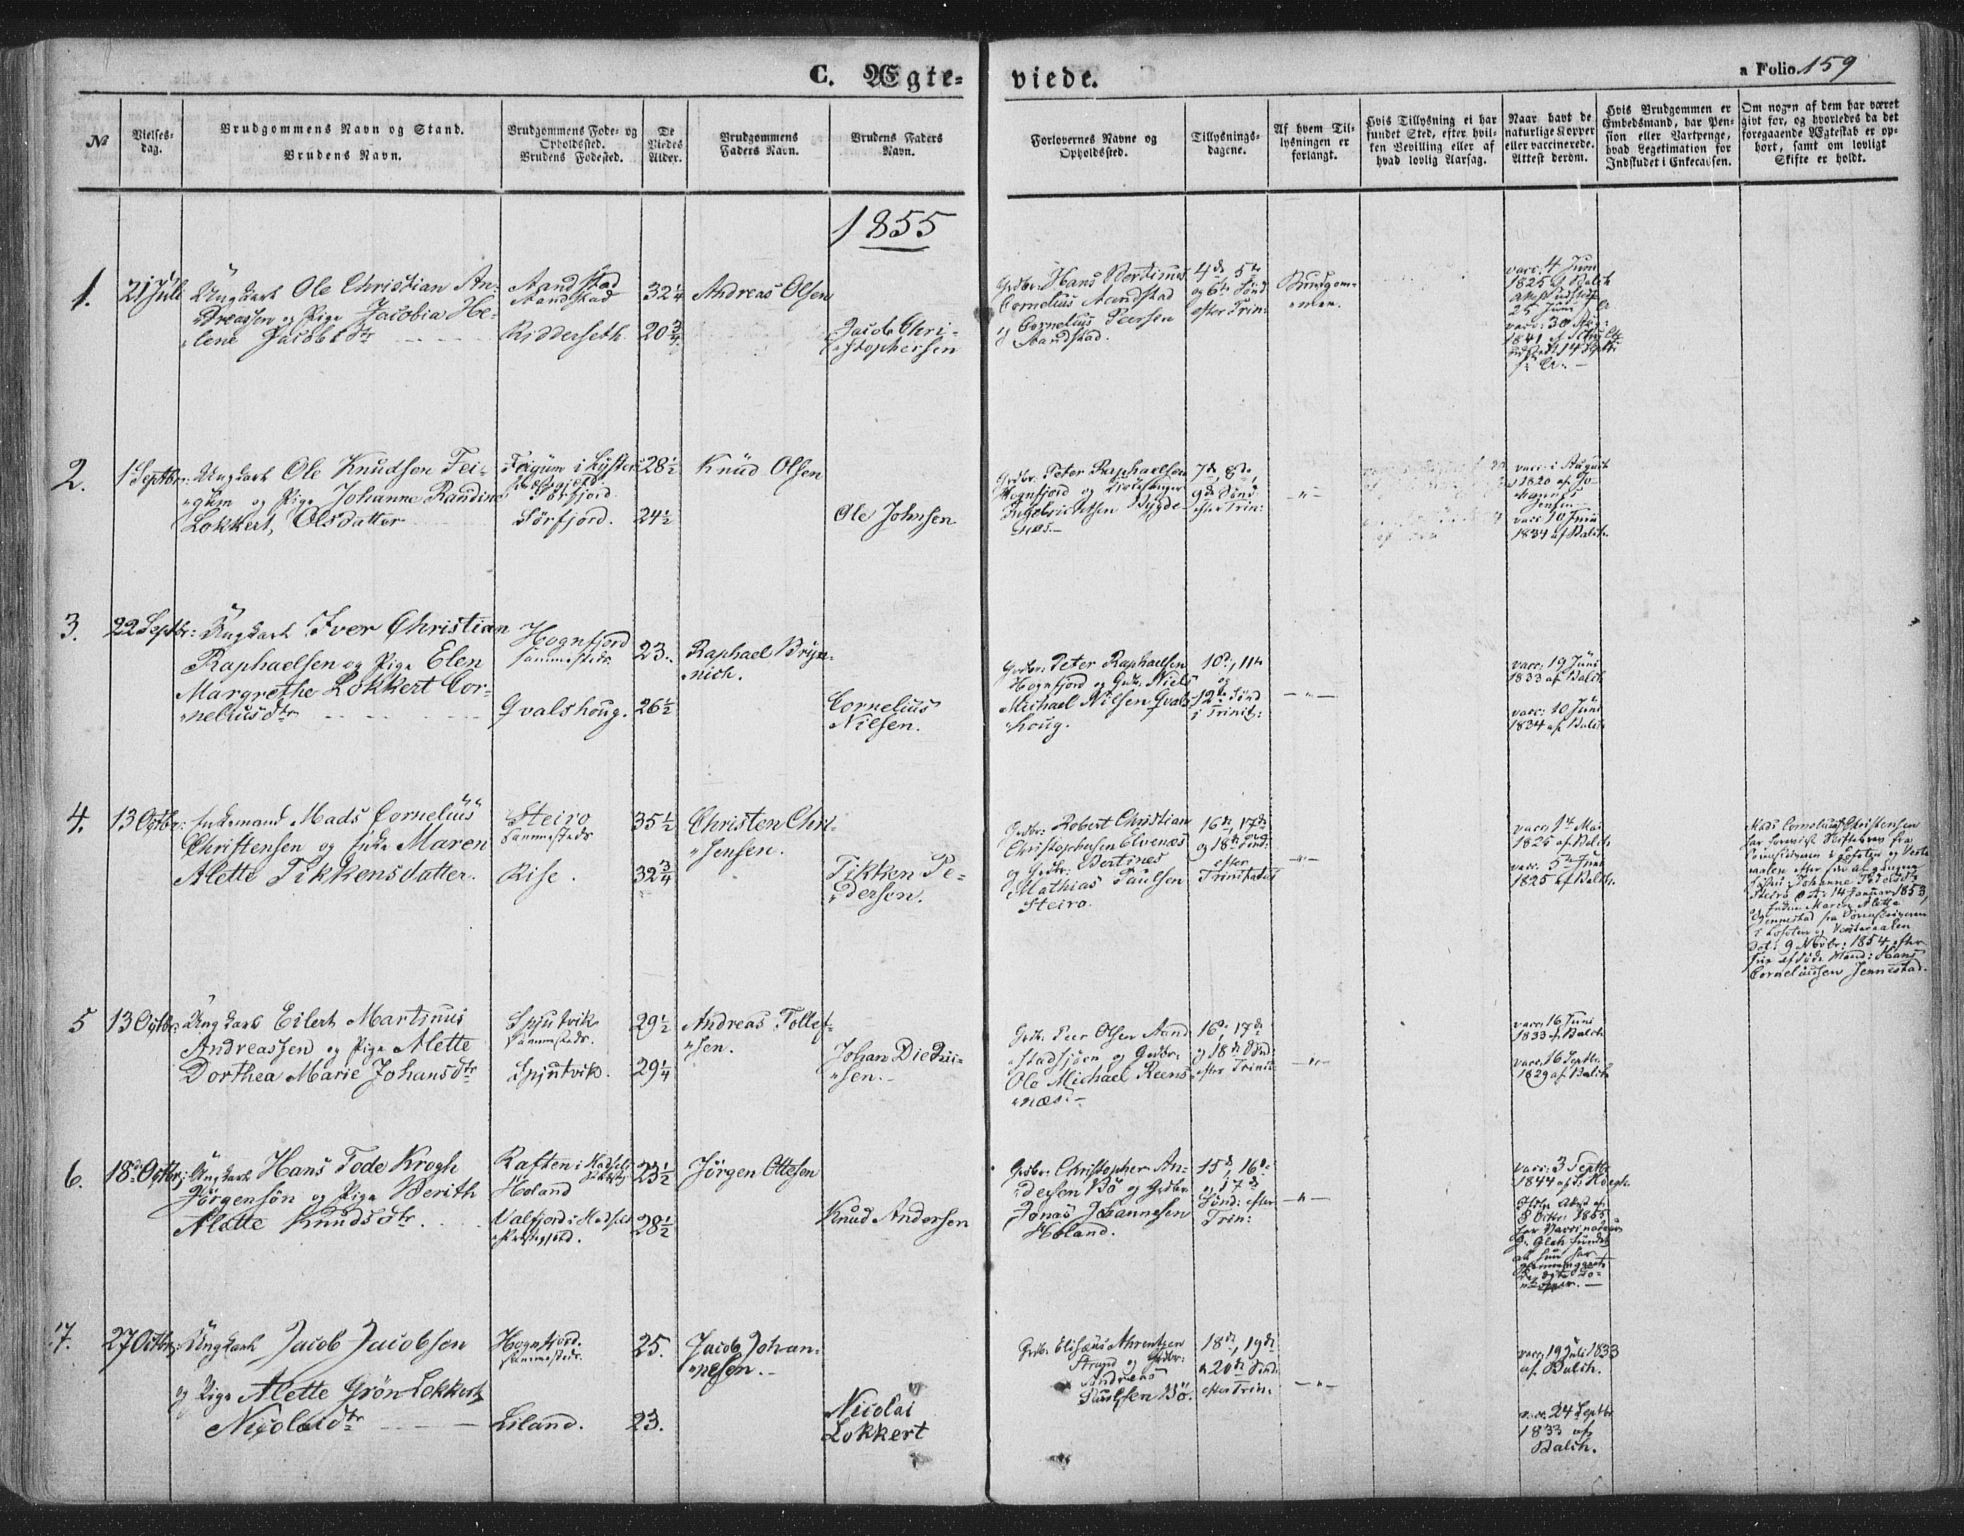 C. Ægte-
viede.
a Folio 159
No
Vielses-
dag.
Brudgommens Navn og Stand.
Brudens Navn.
Brudgommens Føde- og
Opholdssted.
Brudens Fødested.
De
Viedes
Alder.
Brudgommens
Faders Navn.
Brudens Faders
Navn.
Forlovernes Navne og
Opholdssted.
Tillysnings-
dagene.
Af hvem Til-
lysningen er
forlangt.
Hvis Tillysning ei har
fundet Sted, efter hvil-
ken Bevilling eller af
hvad lovlig Aarsag.
Naar havt de
naturlige Kopper
eller vaccinerede.
Attest derom.
Hvis Brudgommen er
Embedsmand, har Pen-
sion eller Vartpenge,
hvad Legetimation for
Indskudet i Enkecassen.
Om nogen af dem har været
givt før, og hvorledes da det
foregaaende Ægteskab er op-
hørt, samt om lovligt
Skifte er holdt.
1855
1.
21 Juli
Ungkarl Ole Christian An-
dreassen og Pige Jacobia He-
lene Jacobsdtr
Aandstad
Aandstad
Ridderseth
32 1/4
20 3/4
Andreas Olsen
Jacob Chri-
stophersen
Grdbr. Hans Bertinus
Cornelius Aandstad
og Cornelius Peersen
Aandstad.
4de 5te
og 6te Sønd
efter Trin:
Brudgom-
men.
vacc: 4 Juni
1825 af Balch
25 Juni
vacc: 30 Aug:
1841 af
14 Septbr
2.
1 Septbr:
Ungkarl Ole Knudsen Fei-
gum og Pige Johanne Randine
Lokkert, Olsdatter
Feigum i Lyster
Præstegjeld
Sørfjord.
Sørfjord.
28 1/2
24 1/2
Knud Olsen
Ole Johnsen
Grdbr. Peter Raphaelsen
Hognfjord og
Ingebrichtsen Bygde
næs.
7de, 8de,
9de Sønd
efter Trin:
— " —
vacc: i August
1820 af Jo-
hannes
Jensen
vacc 10 Juni
1834 af Balch.
3.
22 Septbr:
Ungkarl Iver Christian
Raphaelsen og Pige Elen
Margrethe Lokkert Cor-
neliusdtr
Hognfjord
sammesteds.
Gvalshoug.
23.
26 1/2
Raphael Bryn-
nich.
Cornelius
Nielsen.
Grdbr: Peter Raphaelsen
Hognfjord og Grdb: Niels
Michael Nielsen Gvals-
houg.
10de, 11te
og
12te Sønd
i Trinit:
— " —
vacc: 19 Juni
1833 af Balch.
vacc: 10 Juni
1834 af Balch
4.
13 Octbr:
Enkemand Mads Cornelius
Christensen og Enke Maren
Alette Tikkensdatter.
Steiro
sammesteds
Rise.
35 1/2
32 3/4
Christen Chri-
stensen.
Tikken Pe-
dersen.
Grdbr: Robert Christian
Christophersen Elvenæs
og Grdbr: Bertines
Mathias Paulsen
Steiro.
16de, 17de
og 18de Sønd:
efter
Trinitatis
— " —
vacc: 1ste Mai
1825 af Balch
vacc. 5te Juni
1825 af Balch.
Mads Cornelius Christensen
har foreviist Skiftebrev fra
Sorenskriveren i Lofoten og Veste-
raalen efter sin afgangne
Hustru: Johanne
Steiro dat: 14 Januar 1853,
Enken Maren Alette
Jennestad fra Sorenskriveren
i Lofoten og Vesteraalen
dat: 9 Novbr: 1854 efter
sin afdøde Mand: Hans
Corneliussen Jennestad.
5
13 Octbr:
Ungkarl Eilert Martinus
Andreassen og Pige Alette
Dorthea Marie Johansdtr
Spjutvik
sammesteds.
Spjutvik.
29 1/2
29 1/4
Andreas Tollef-
sen.
Johan Diedri-
sen.
Grdbr. Peer Olsen Aand
stadsjøen og Grdbr:
Ole Michael Reens
næs.
16de, 17de
og 18de Sønd:
efter Trinit:
— " —
vacc. 16 Juni
1833 af Balch.
vacc. 16 Septbr.
1829 af Balch
6.
18de Octbr:
Ungkarl Hans Tode Krogh
Jørgensøn og Pige Berith
Alette Knudsdtr.
Raften i Hadsel
Holand
Valfjord i Hadsel
Præstegjeld.
23 1/2
28 1/2
Jørgen Ottesen
Knud Andersen
Grdbr. Christopher An-
dersen Bø og Grdbr
Jonas Johannesen
Holand.
15de, 16de
og 17de
Sønd: efter
Trin:
— " —
vacc: 3 Septbr
1844 af
Ifølge Attest af
8 Octbr: 1855
har Vaccinateur
fundet
at hun har
7.
27 Octbr:
Ungkarl Jacob Jacobsen
og Pige Alette Grøn Lokkert
Nicolaidtr
Hognfjord.
sammesteds.
Liland.
25.
23.
Jacob Johan-
nesen.
Nicolai
Lokkert
Grdb. Elisæus Ahrentzen
Strand og Grdbr:
Andreas
Paulsen Bø.
18de, 19de
& 20de Sønd:
efter Trin:
— " —
vacc: 19 Juli 1833
af Balch.
vacc. 24 Septbr
1833 af
Balch.